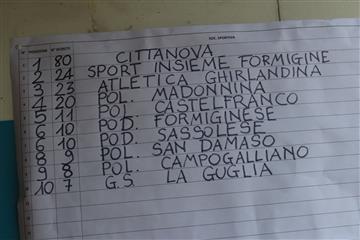 SOC. SPORTIVA
1 80 CITTANOVA
2 24 SPORT INSIEME FORMIGINE
3 23 ATLETICA GHIRLANDINA
4 20 POL. MADONNINA
5 11 POL. CASTELFRANCO
6 10 POD. FORMIGINESE
6 10 POD. SASSOLESE
8 9 POL. SAN DAMASO
9 8 POL. CAMPOGALLIANO
10 7 G.S. LA GUGLIA